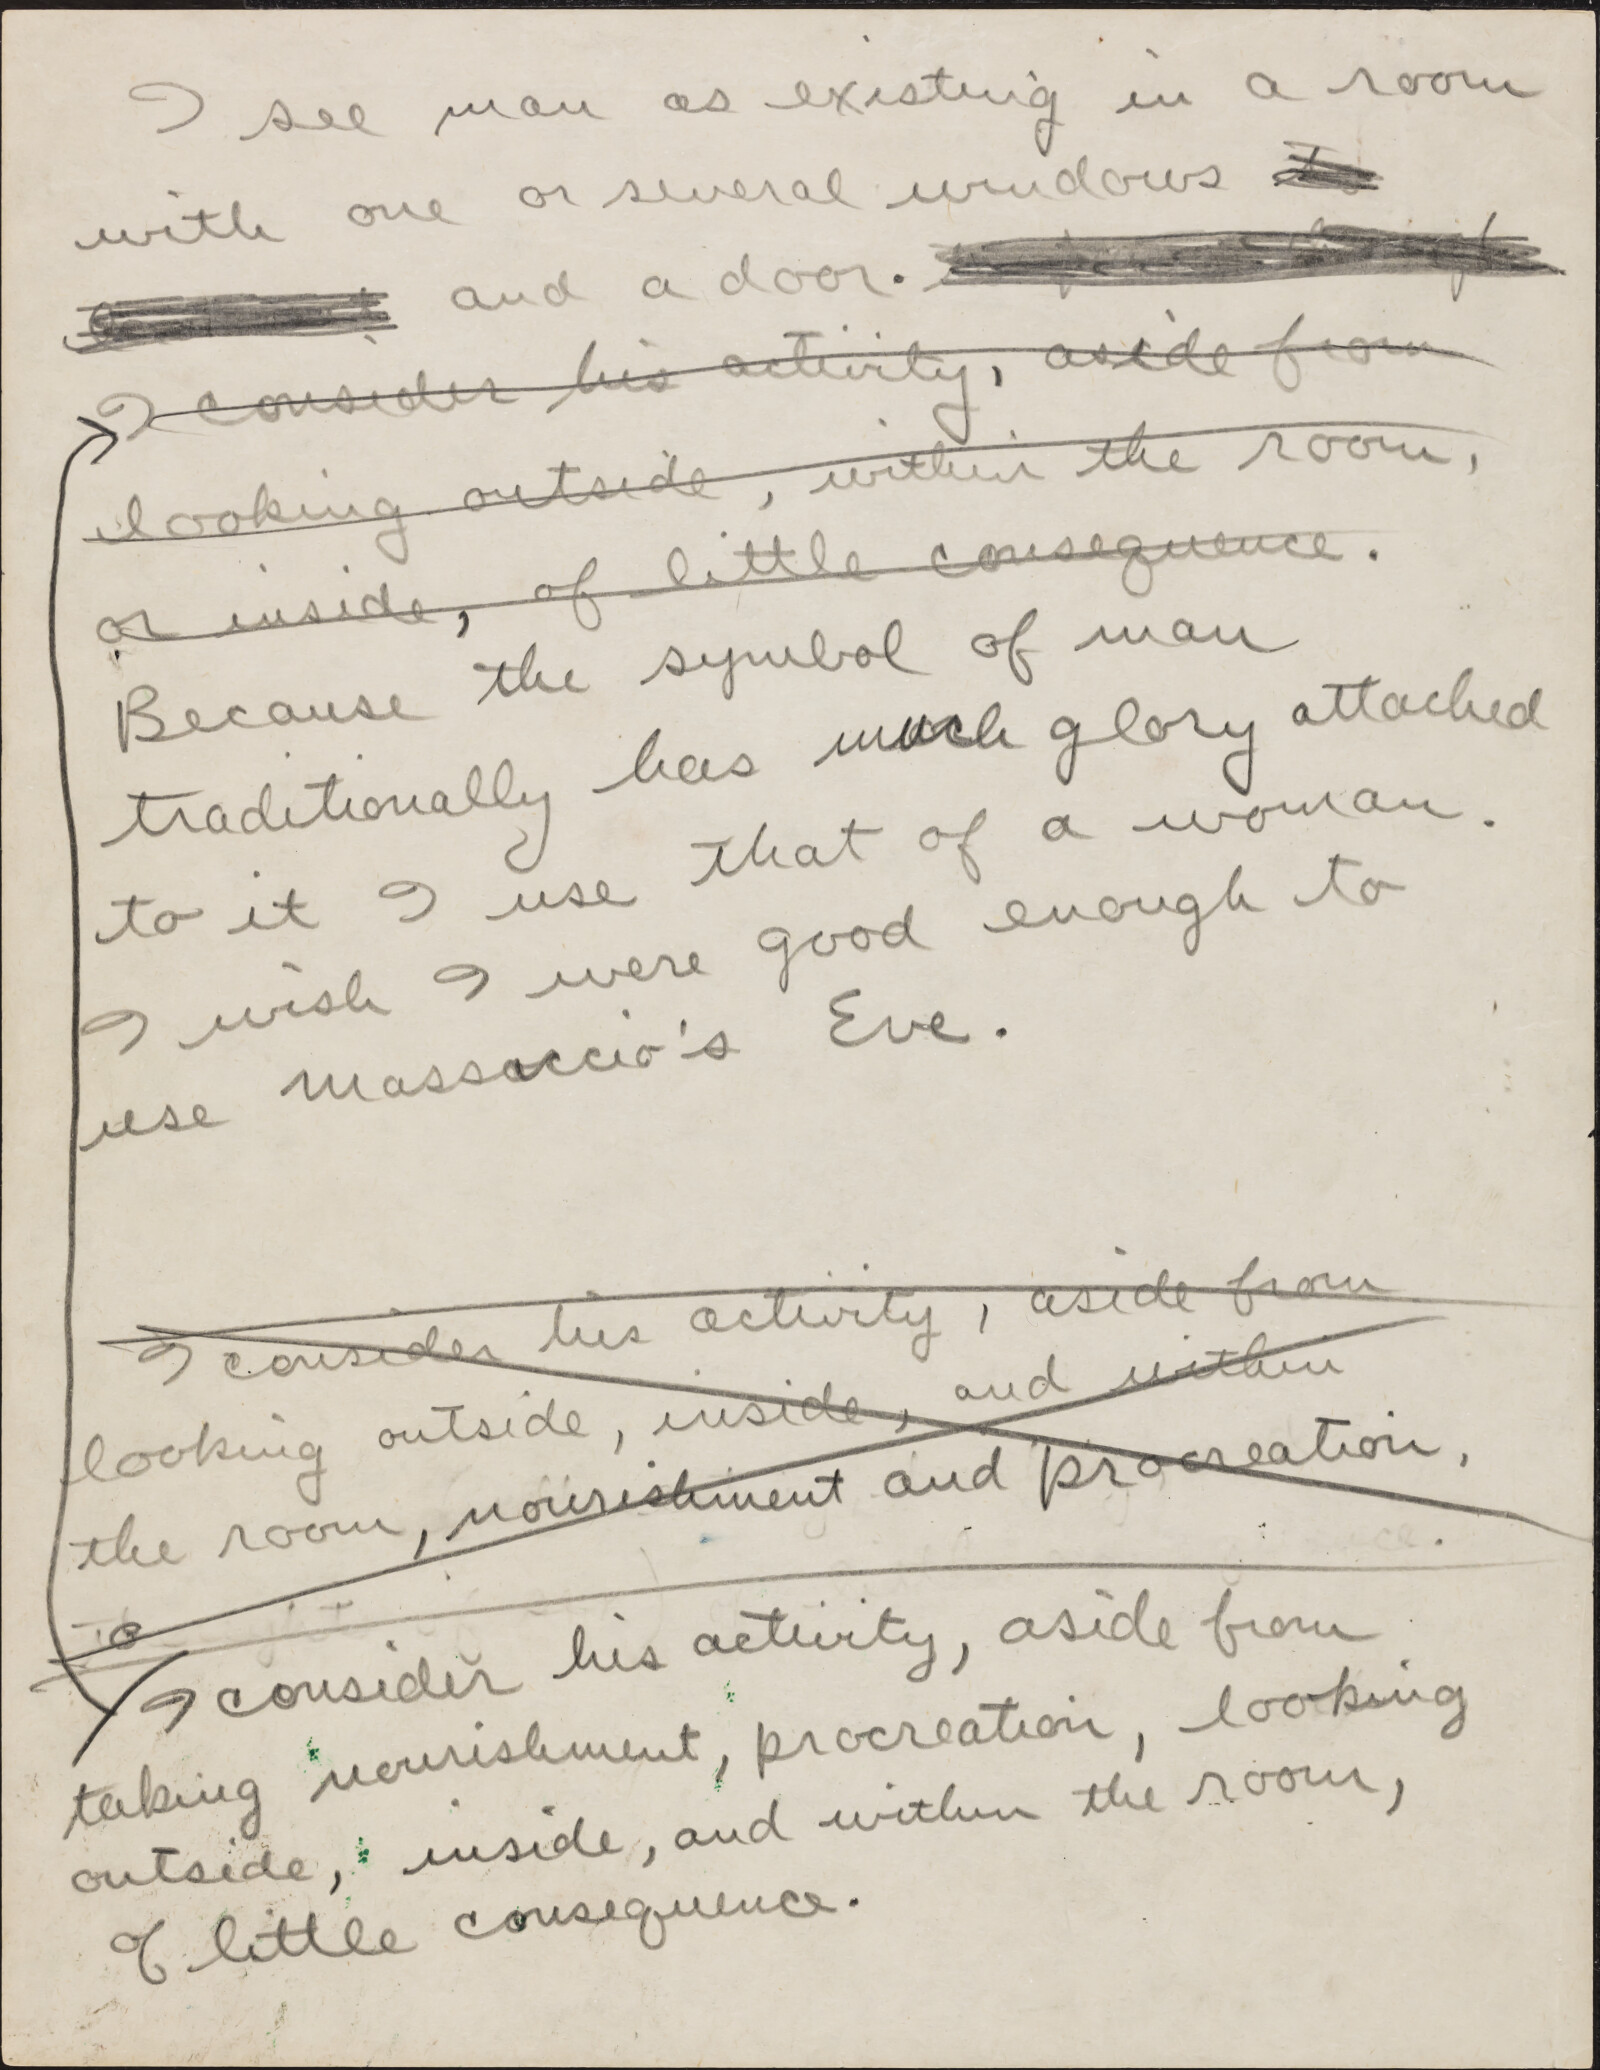 I see man as existing in a room
with one or several windows
and a door.
I consider his activity, aside from
looking outside, within the room,
or inside, of little consequence.
Because the symbol of man
traditionally has much glory attached
to it I use that of a woman.
I wish I were good enough to
use Massaccio's Eve.
I consider his activity, aside from
looking outside, inside, and within
the room, nourishment and procreation,
I consider his activity, aside from
taking nourishment, procreation, looking
outside, inside, and within the room,
of little consequence.